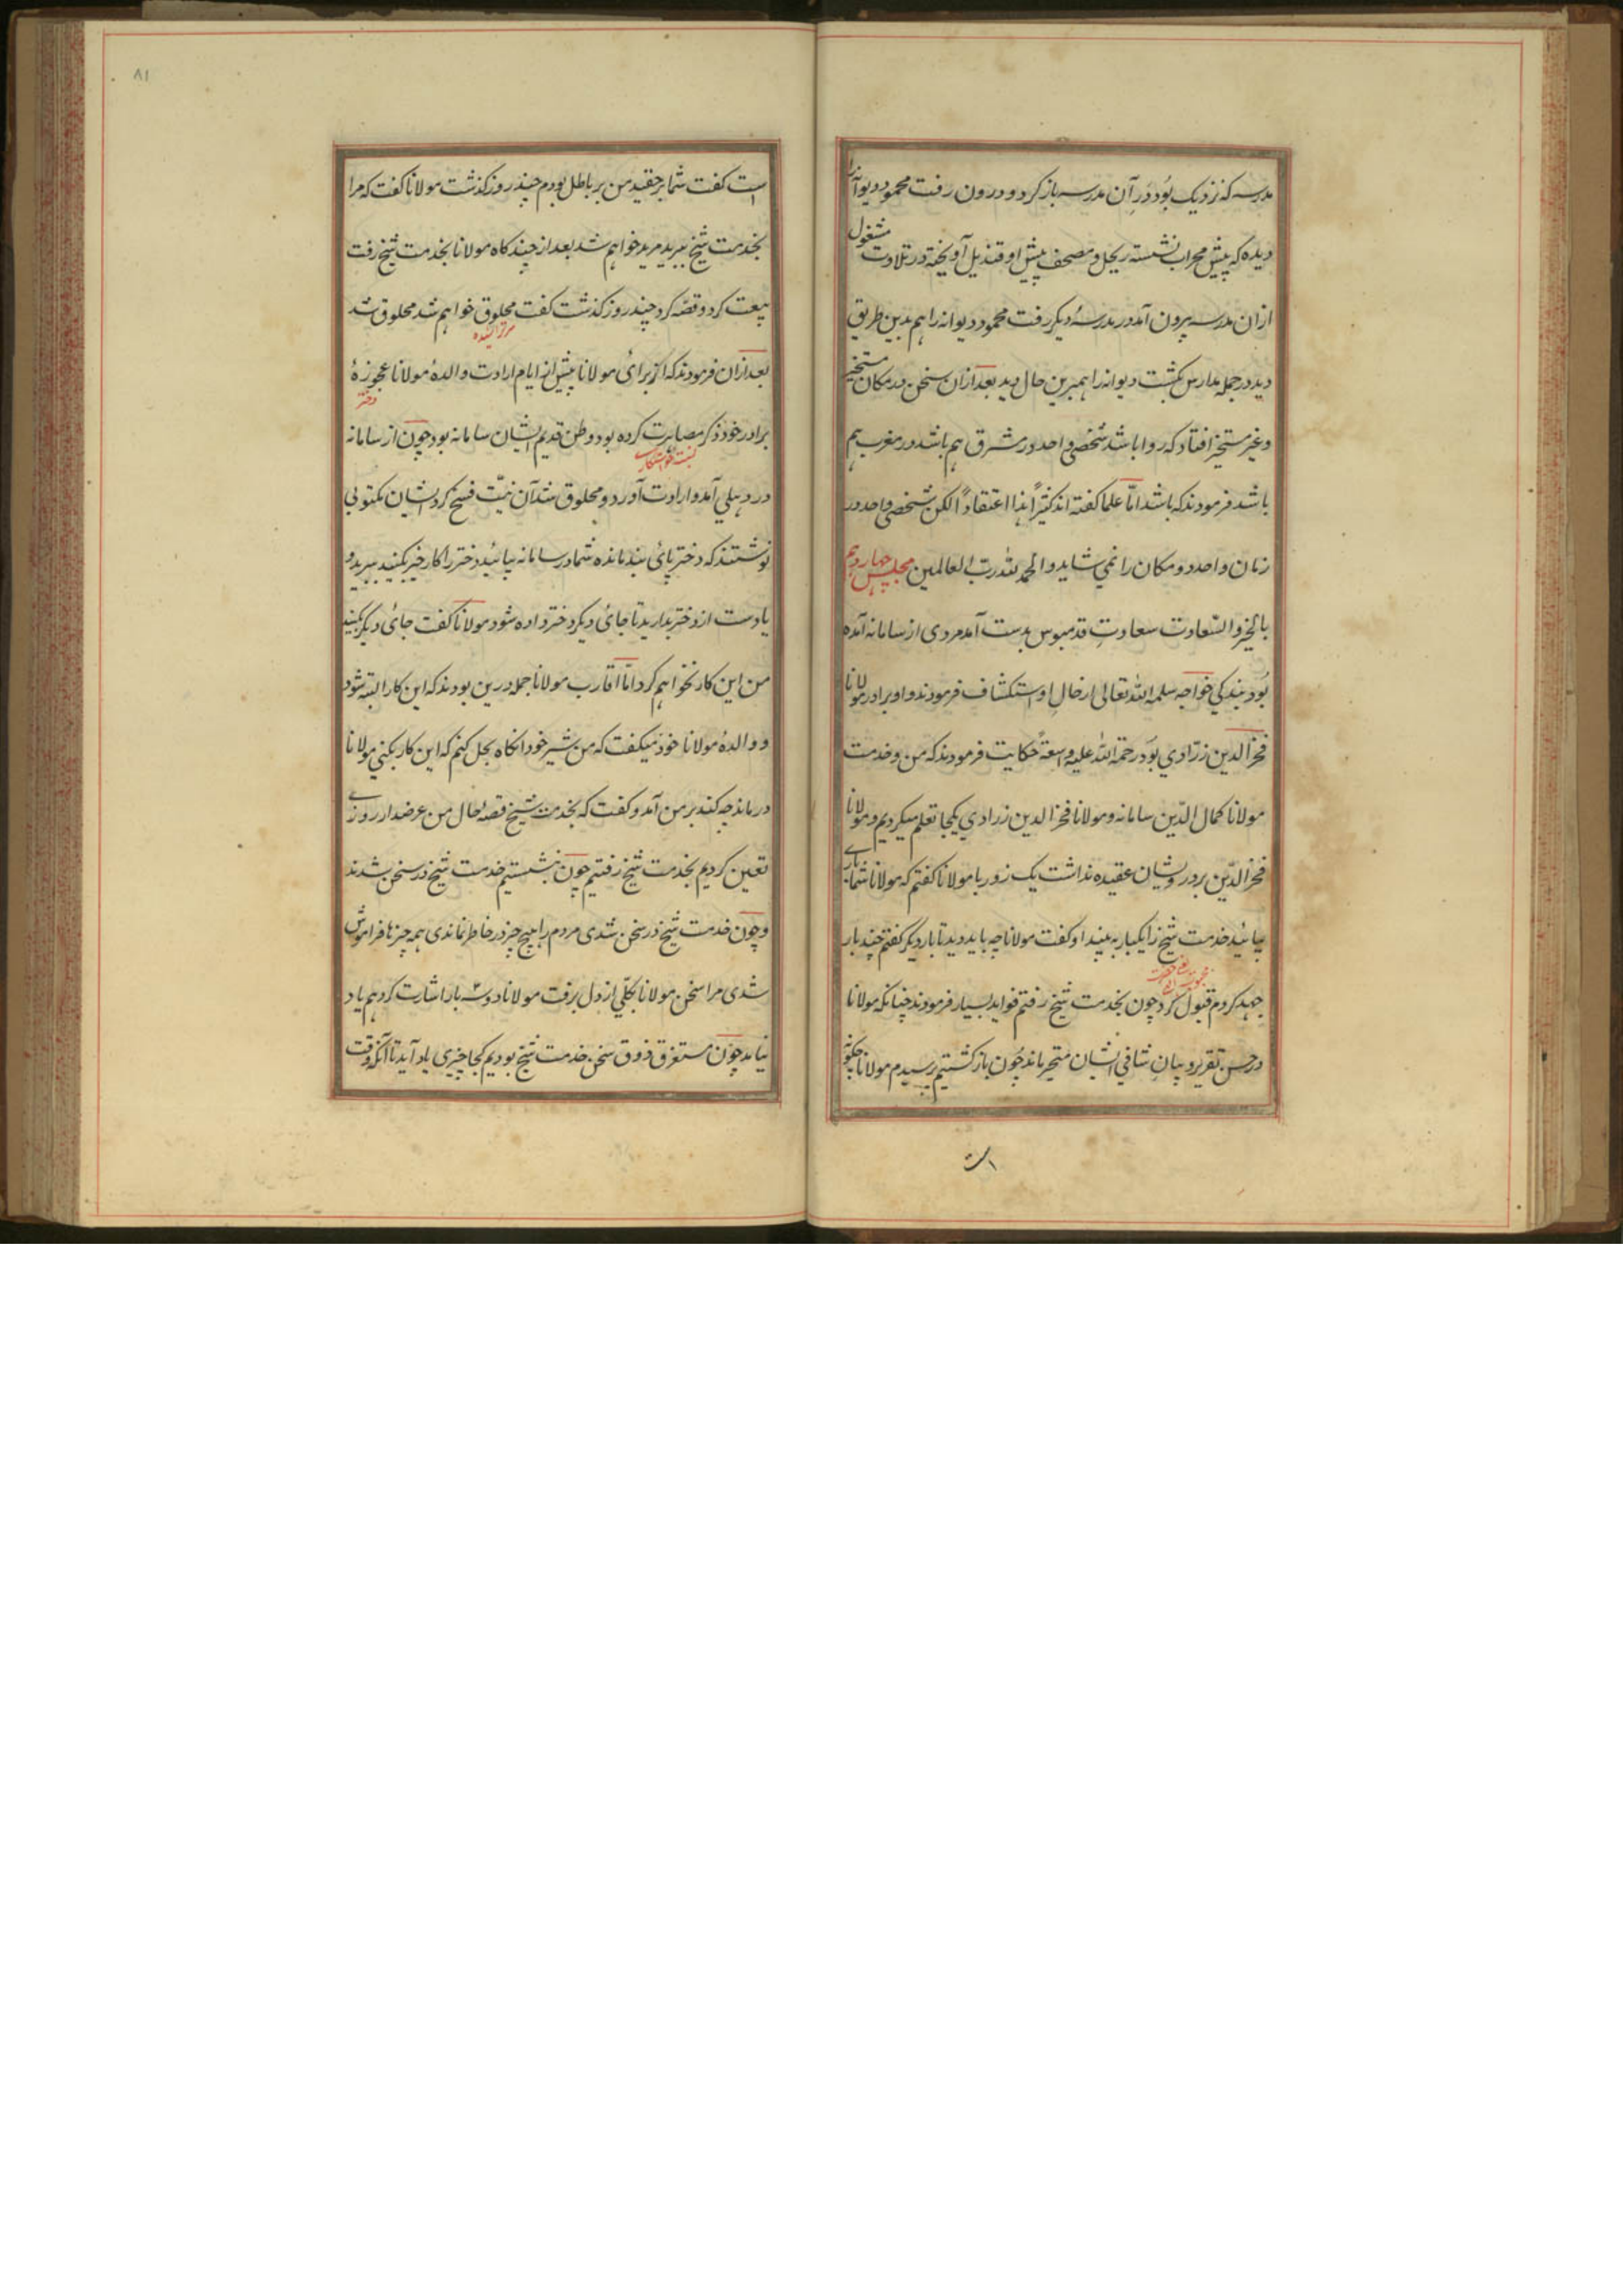 مدرسه که نزدیک بُود دَرِ آن مدرسه باز کرد و درون رفت محمود دیوانه را
دیده که پیش محراب نشسته ریحل و مصحف پیش او قندیل آویخته در تلاوت مشغول
ازان مدرسه بیرون آمد در مدرسهٔ دیکر رفت محمود دیوانه را هم بدین طریق
دید در جمله مدارس بکشت دیوانه را همبرین حال دید بعد ازان سخن در مکان متحیز
و غیر متحیز افتاد که روا باشد شخصی واحد در مشرق هم باشد در مغرب هم
باشد فرمودند که باشد امّا علما کفته اند کثیراً اعتقاداً لکن شخصی واحد در
زمان واحد دو مکان را نمی شاید و الحمد لله رب العالمین مجلس چهاردهم
بالخیر و السّعادت سعادتِ قدمبوس بدست آمد مردی از سامانه آمده
بُود بندکی خواجه سلمه الله تعالی از حال او استکشاف فرمودند و او برادر مولانا
فخر الدین زرّادی بود رحمة الله علیه واسعةً حکایت فرمودند که من و خدمت
مولانا کمال الدّین سامانه و مولانا فخر الدین زرادی یکجا تعلم میکردیم و مولانا
فخر الدّین بر درویشان عقیده نداشت یک روز با مولانا کفتم که مولانا شما باری
بیائید خدمت شیخ را یکبار به بینید او کفت مولانا چه باید دید تا بار دیکر کفتم چند بار
جهد کردم قبول کرد چون بخدمت شیخ رفتم فواید بسیار فرمودند چنانکه مولانا
در حسن تقریر و بیانِ شافی ایشان متحیر ماند چُون باز کشتیم پرسیدم مولانا چکونه
است
۸۱
است کفت شما بر حقید من بر باطل بودم چند روز کذشت مولانا کفت که مرا
بخدمت شیخ ببرید مرید خواهم شد بعد از چند کاه مولانا بخدمت شیخ رفت
بیعت کرد و قصّه کرد چند روز کذشت کفت محلوق خواهم شد محلوق شد
سر تراشیده
بعد ازان فرمودند که از برای مولانا پیش از ایام ارادت والدهٔ مولانا عجوزهٔ
دختر
برادر خود ذکر مصاهرت کرده بود وطن قدیم ایشان سامانه بود چون از سامانه
نسبت خواستکاری
در دهلی آمد و ارادت آورد و محلوق شد آن نیّت فسخ کرد ایشان مکتوبی
نوشتند که دختر پای بند مانده شما در سامانه بیائید دختر را کار خیر بکنید ببرید و
یا دست از دختر بدارید تا جای دیکر دختر داده شود مولانا کفت جای دیکر بکنید
من این کار نخواهم کرد امّا اقارب مولانا جمله درین بودند که این کار البته شود
و والدهٔ مولانا خود میکفت که من شیر خود انکاه بحل کنم که این کار بکنی مولانا
درماند چه کند بر من آمد و کفت که بخدمت شیخ قصهٔ حال من عرضدار روزی
تعین کردیم بخدمت شیخ رفتیم چون بنشستیم خدمت شیخ در سخن شدند
و چون خدمت شیخ در سخن شدی مردم را هیچ چیز در خاطر نماندی همه چیزها فراموش
شدی مرا سخن مولانا بکلّی از دل برفت مولانا دو سه بار اشارت کرد هم یاد
نیامد چون مستغرق ذوق سخن خدمت شیخ بودیم کجا چیزی یاد آید تا آنکه وقت